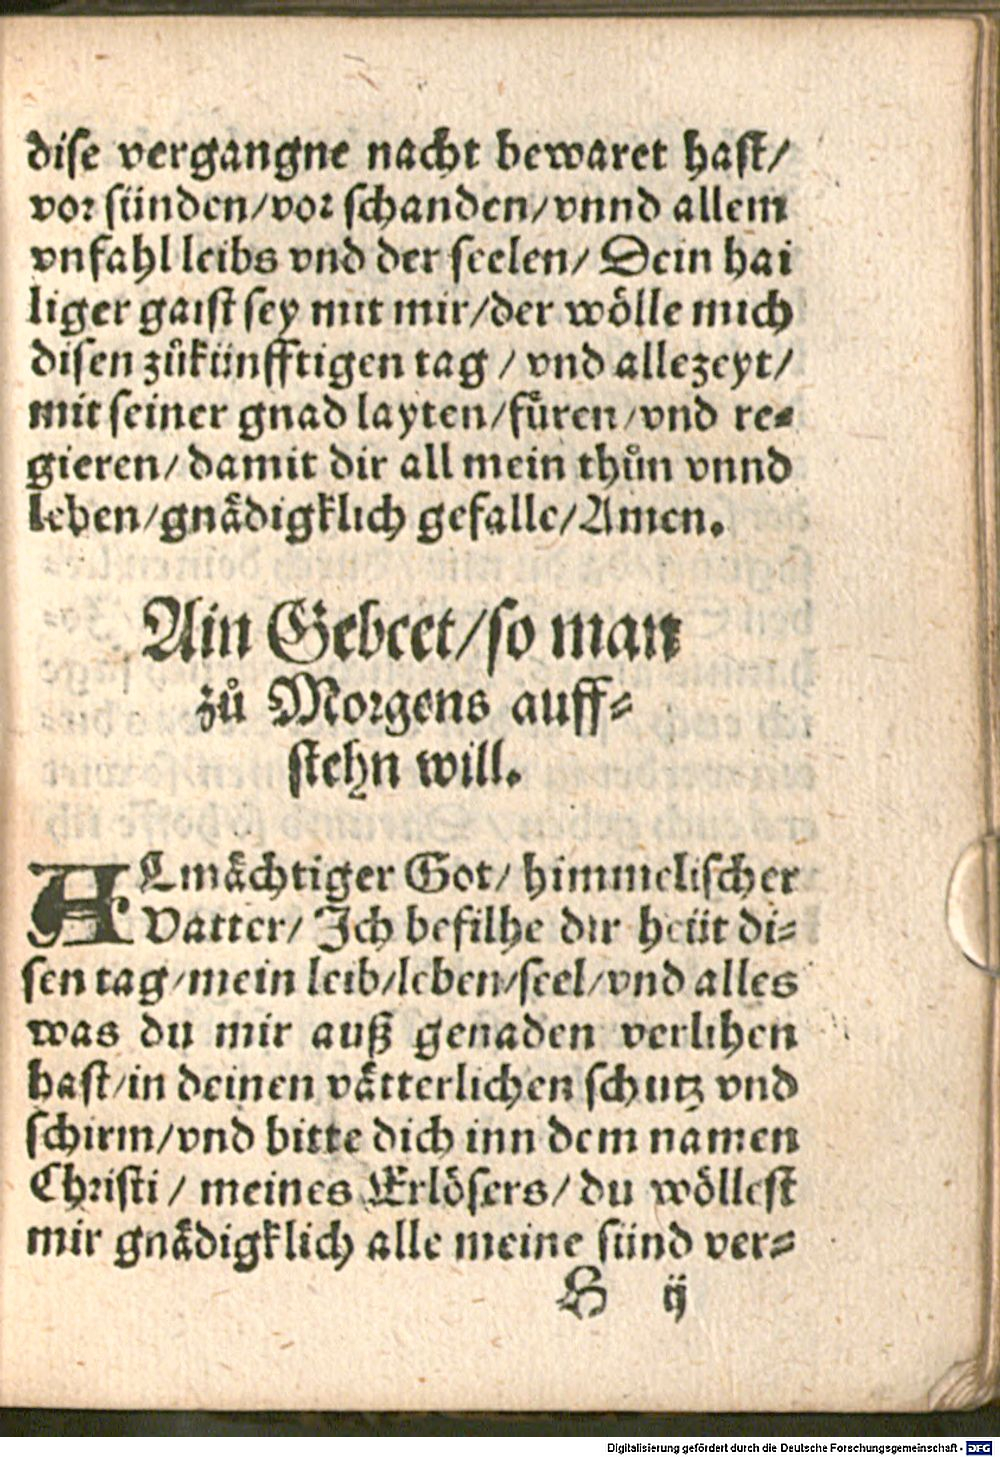 dise vergangne nacht bewaret hast/
vor sünden/vor schanden/vnnd allem
vnfahl leibs vnd der seelen/ Dein hai
liger gaist sey mit mir/der wölle mich
disen zůkünfftigen tag / vnd allezeyt/
mit seiner gnad layten/fůren/vnd re-
gieren/ damit dir all mein thůn vnnd
leben/gnådigklich gefalle/Amen.
Ain Gebeet/so man
zů Morgens auff-
stehn will.
ALmåchtiger Got/ himmelischer
Vatter/ Ich befilhe dir heüt di-
sen tag/mein leib/leben/seel/vnd alles
was du mir auß genaden verlihen
hast/in deinen våtterlichen schutz vnd
schirm/vnd bitte dich inn dem namen
Christi / meines Erlösers/ du wöllest
mir gnådigklich alle meine sünd ver-
H ij
Digitalisierung gefördert durch die Deutsche Forschungsgemeinschaft - DFG